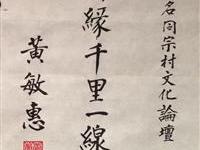 名同宗村文化論壇
緣千里一線
黃敏惠